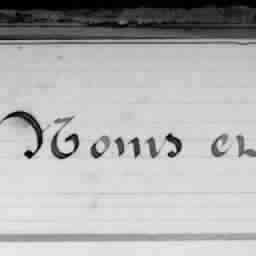 Noms en